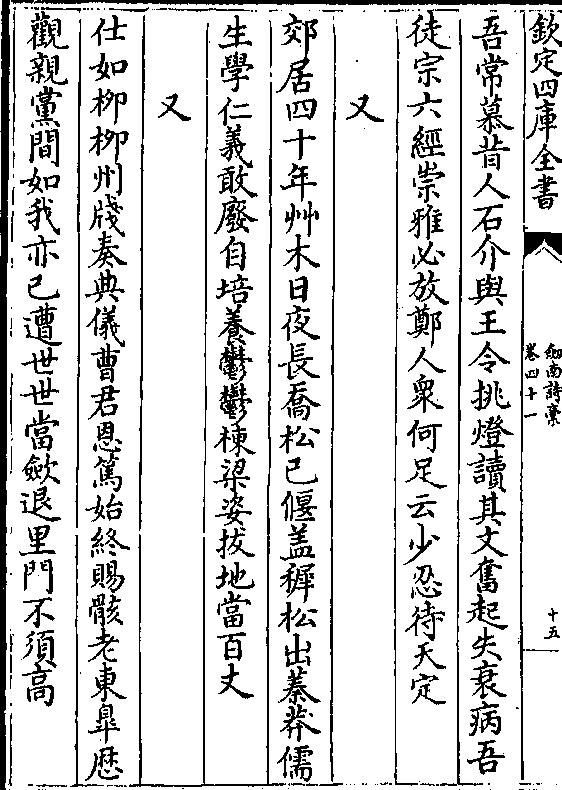 欽定四庫全書
劍南詩藁
卷四十一
十五
吾常慕昔人石介與王令挑燈讀其文奮起失衰病吾
徒宗六經崇雅必放鄭人衆何足云少忍待天定
又
郊居四十年艸木日夜長喬松已偃盖穉松出蓁莽儒
生學仁義敢廢自培養鬱鬱棟梁姿拔地當百丈
又
仕如柳柳州牋奏典儀曹君恩篤始終賜骸老東臯歴
觀親黨間如我亦已遭世世當歛退里門不須高